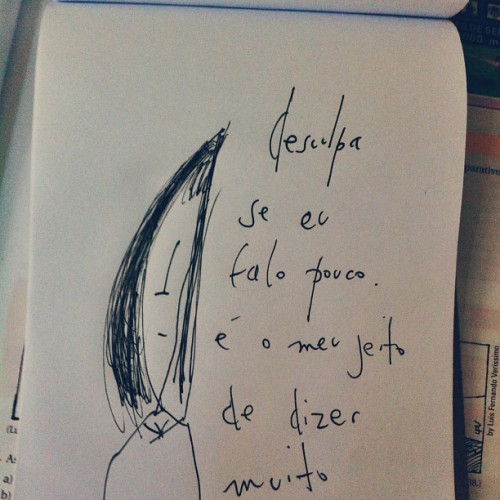 desculpa
se eu
falo pouco.
é o meu jeito
de dizer
muito
parativo
by Luis Fernando Verissimo
(Lu
a)
b)